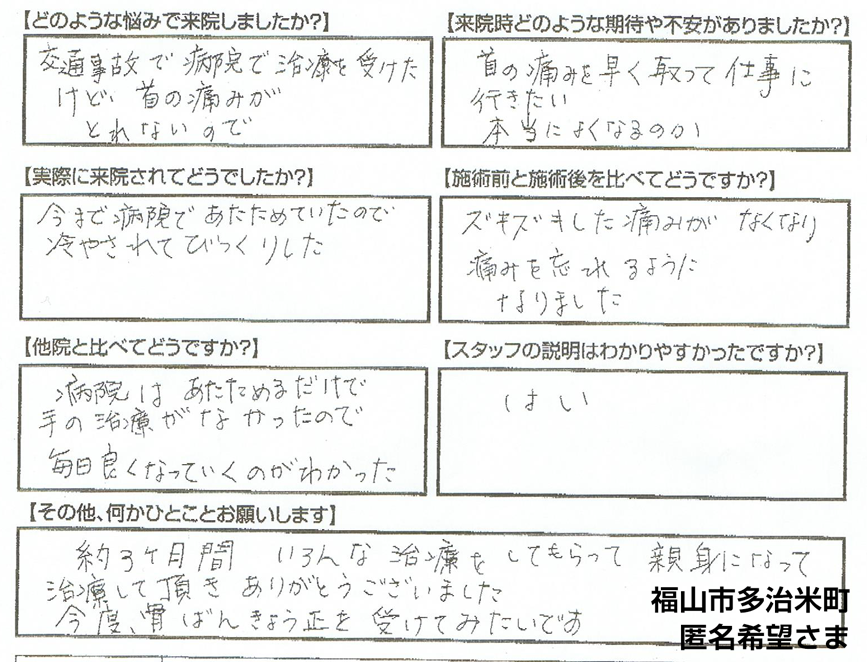 【どのような悩みで来院しましたか?】
交通事故で病院で治療を受けた
けど、首の痛みが
とれないので
【来院時どのような期待や不安がありましたか?】
首の痛みを早く取って仕事に
行きたい
本当によくなるのか
【実際に来院されてどうでしたか?】
今まで病院であたためていたので
冷やされてびっくりした
【施術前と施術後を比べてどうですか?】
ズキズキした痛みがなくなり
痛みを忘れるように
なりました
【他院と比べてどうですか?】
病院はあたためるだけで
手の治療がなかったので
毎日良くなっていくのがわかった
【スタッフの説明はわかりやすかったですか?】
はい
【その他、何かひとことお願いします】
約3ヶ月間 いろんな治療をしてもらって 親身になって
治療して頂きありがとうございました
今度、骨ばんきょう正を受けてみたいです
福山市多治米町
匿名希望さま